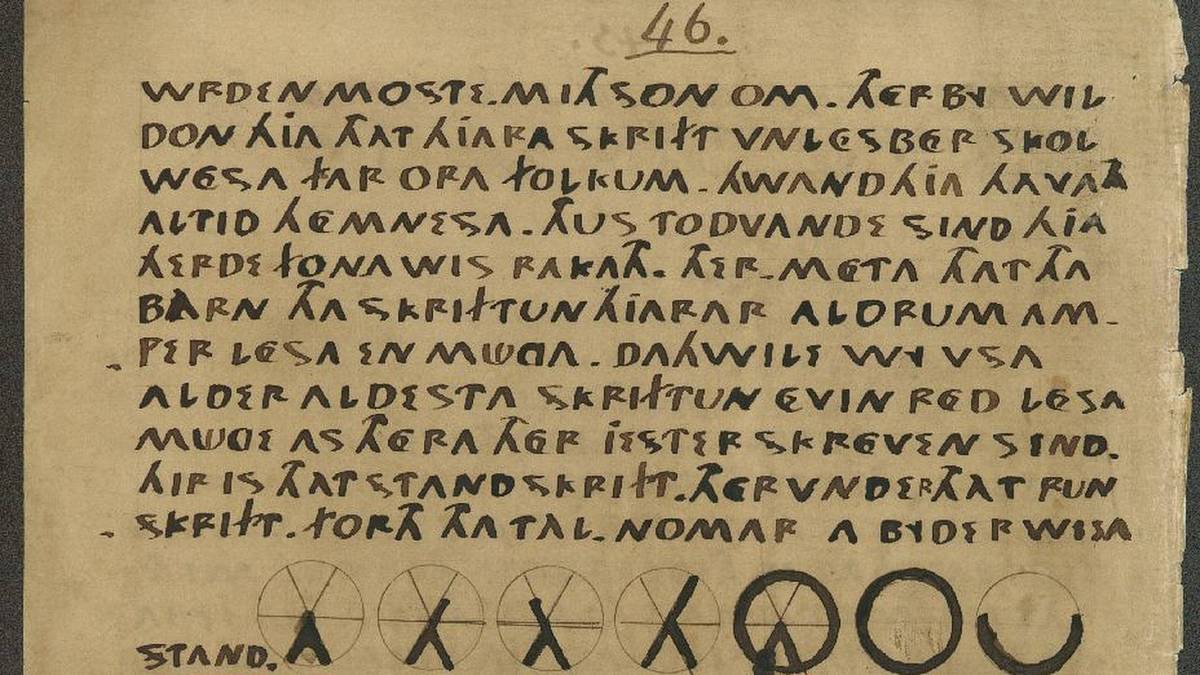 46.
WRDEN MOSTE. MITH SON OM. THERBY WIL
DON HIA THAT HIARA SKRIFT VNLESBER SKOL
WESA FAR ORA FOLKUM. HWAND HIA HAVATH
ALTID HEMNESA. THUS TODVANDE SIND HIA
HERDE FONA WIS RAKATH. THER-META THAT THA
BARN THA SKRIFTUN HIARAR ALDRUM AM-
PER LESA EN MÜGA. DAHWILE WY VSA
ALDER ALDESTA SKRIFTUN EVIN RED LESA
MÜGE AS THERA THER IESTER SKREVEN SIND.
HIR IS THAT STAND SKRIFT. THER VNDER THAT RUN
SKRIFT. FORTH THA TAL-NOMAR A BYDER WISA
STAND.